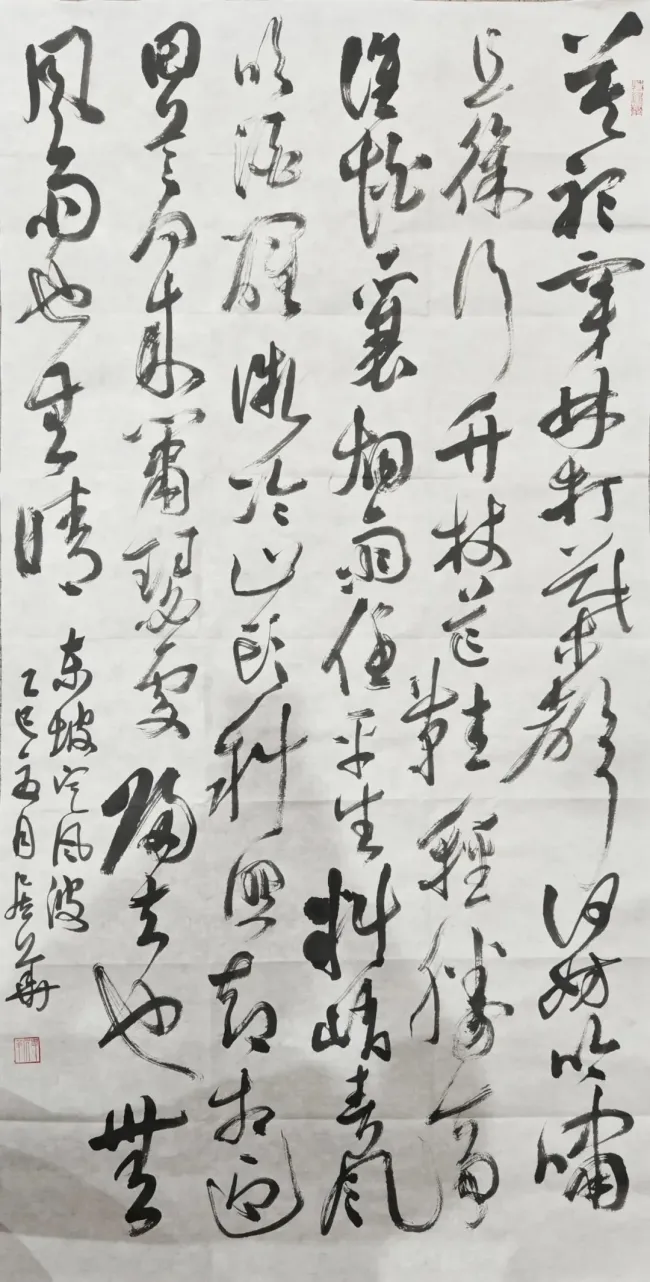 莫聽穿林打葉聲何妨吟嘯
且徐行竹杖芒鞋輕勝馬
誰怕一蓑烟雨任平生料峭春风
吹酒醒微冷山头斜照却相迎
回首向来蕭瑟處歸去也無
风雨也無晴
东坡定风波
乙巳五月